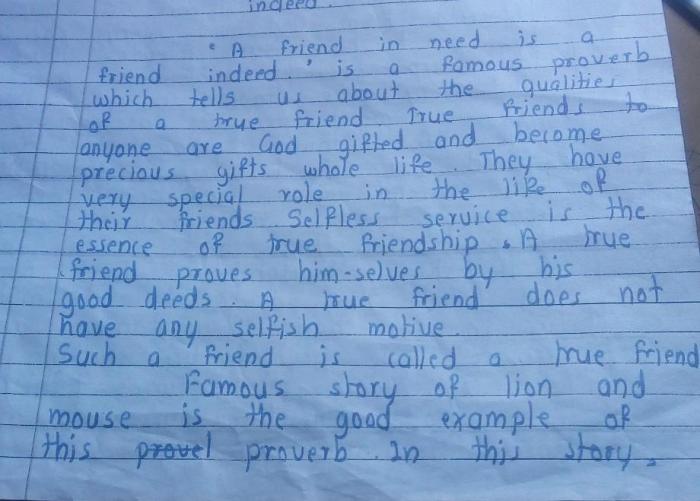 indeed.
' A friend in need is a
friend indeed.' is a famous proverb
which tells us about the qualities
of a true friend True friends to
anyone are God gifted and become
precious gifts whole life. They have
very special role in the life of
their friends Selfless service is the
essence of true friendship. A true
friend proves him-selves by his
good deeds. A true friend does not
have any selfish motive.
Such a friend is called a true friend
Famous story of lion and
mouse is the good example of
this provel proverb. In this story,